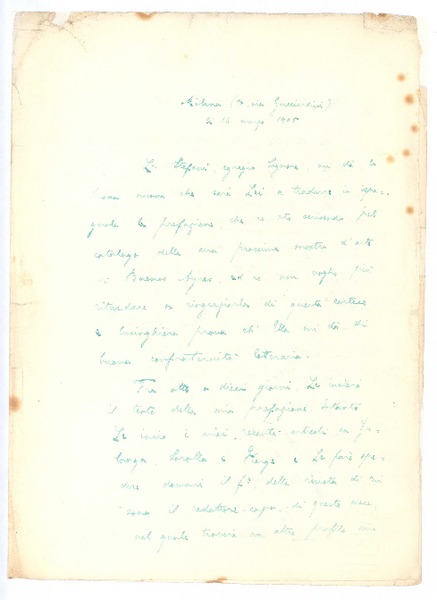 Milano (7, via Guicciardini)
li 14 marzo 1905
Lo Stefani, egregio Signore, mi dà la
buona nuova che sarà Lei a tradurre in ispa-
gnolo la prefazione, che io sto scrivendo pel
catalogo della sua prossima mostra d'arte
di Buenos Ayres, ed io non voglio più
ritardare a ringraziarla di questa cortese
e lusinghiera prova ch'Ella mi dà di
buona confraternità letteraria.
Fra otto o dieci giorni, Le invierò
il testo della mia prefazione. Intanto
Le invio i miei recenti articoli su Zu-
loaga, Sorolla e e Le farò spe-
dire domani il f.° della rivista di cui
sono il redattore-capo, di questo mese,
nel quale troverà un altro profilo mio